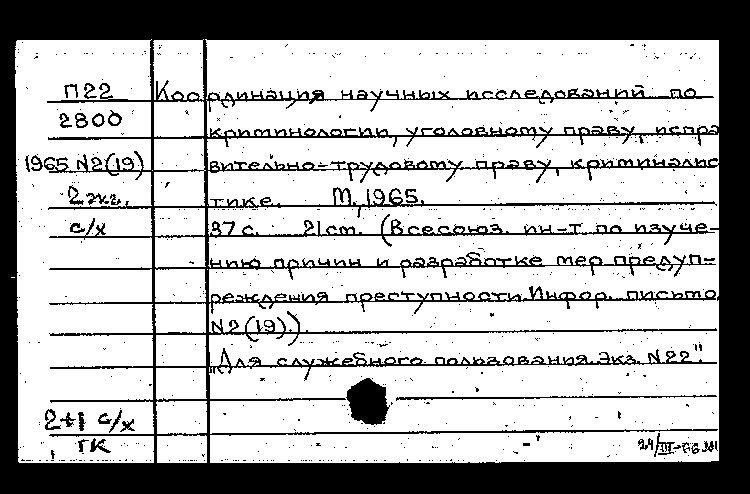 П22
2800
1965 N2(19)
2 экз.
с/х
Координация научных исследований по
криминологии, уголовному праву, испра
вительно-трудовому праву, криминалис
тике. М, 1965.
37 с. 21 см. (Всесоюз. ин-т по изуче-
нию причин и разработке мер предуп-
реждения преступности. Инфор. письмо
N2(19).)
"Для служебного пользования. Экз. N22".
2+1 с/х
ГК
24/III-66